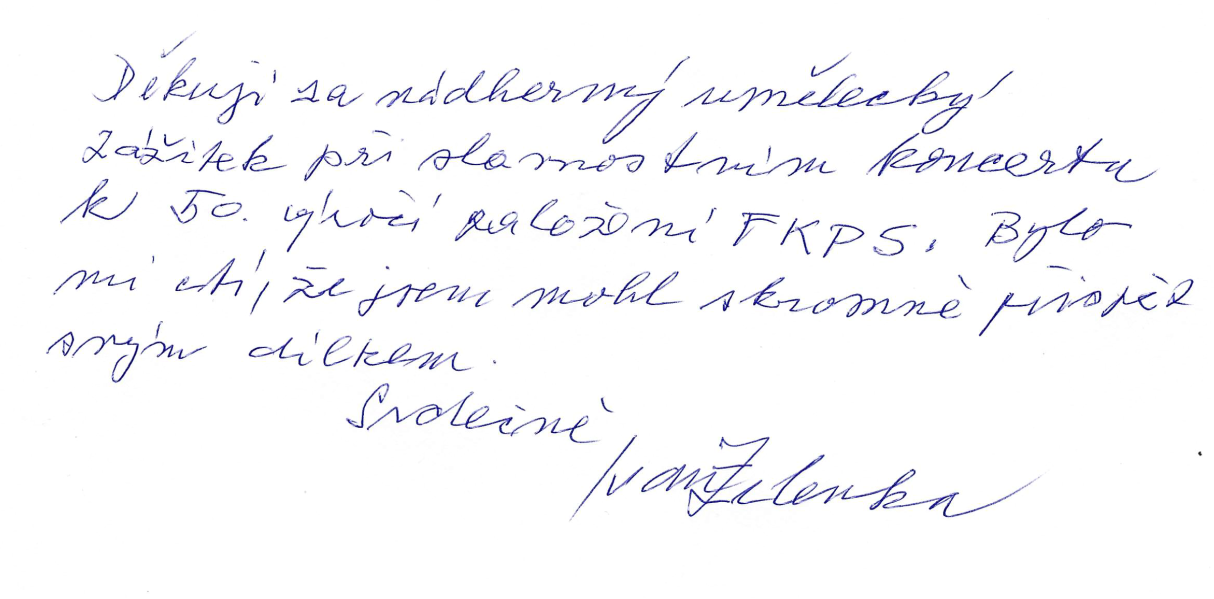 Děkuji za nádherný umělecký
zážitek při slavnostním koncertu
k 50. výročí založení FKPS. Bylo
mi ctí, že jsem mohl skromně přispět
svým dílkem.
Srdečně
Ivan Zelenka